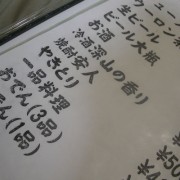 ュー
ウーロン
生ビール
ビール大瓶
お酒
冷酒深山の香り
焼酎安人
やきとり
一品料理
おでん(3品)
でん(1品)